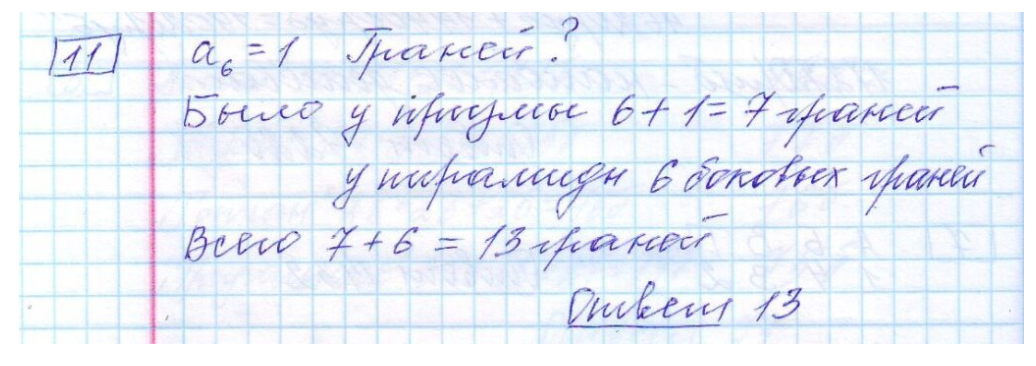 11 a₆ = 1 Граней?
Было у призмы 6 + 1 = 7 граней
у пирамиды 6 боковых граней
Всего 7 + 6 = 13 граней
Ответ 13